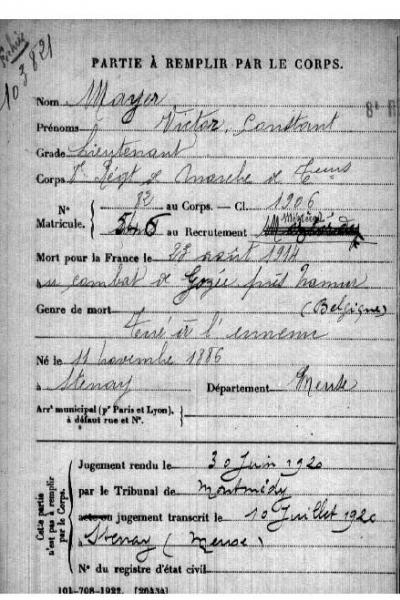 103821
PARTIE À REMPLIR PAR LE CORPS.
Nom Mayer
Prénoms Victor, Constant
Grade Lieutenant
Corps Régt de Marche de Tirailleurs
N° 82 au Corps. — Cl. 1906
Matricule. 546 au Recrutement Mézières
Mort pour la France le 23 août 1914
au combat de Gozée près Namur
(Belgique)
Genre de mort Tué à l'ennemi
Né le 11 novembre 1886
à Stenay Département Meuse
Arrt municipal (pr Paris et Lyon), à défaut rue et N°.
Cette partie n'est pas à remplir par le Corps.
Jugement rendu le 30 Juin 1920
par le Tribunal de Montmédy
acte ou jugement transcrit le 10 Juillet 1920
Stenay (Meuse)
N° du registre d'état civil
101-708-1922. [20434]